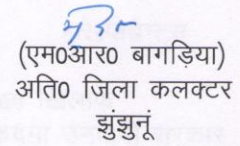 (एम0आर0 बागड़िया)
अति0 जिला कलक्टर
झुंझुनूं